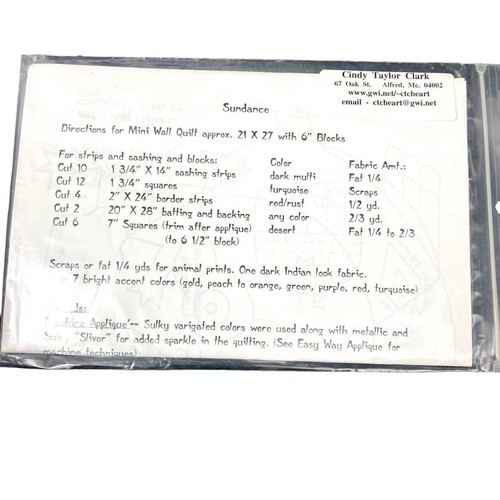 Cindy Taylor Clark
67 Oak St. Alfred, Me. 04002
www.gwi.net/~ctcheart
email - ctcheart@gwi.net
Sundance
Directions for Mini Wall Quilt approx. 21 X 27 with 6" Blocks
For strips and sashing and blocks: Color Fabric Amt.:
Cut 10 1 3/4" X 14" sashing strips dark multi Fat 1/4
Cut 12 1 3/4" squares turquoise Scraps
Cut 4 2" X 24" border strips red/rust 1/2 yd.
Cut 2 20" X 28" batting and backing any color 2/3 yd.
Cut 6 7" Squares (trim after applique) desert Fat 1/4 to 2/3
(to 6 1/2" block)
Scraps or fat 1/4 yds for animal prints. One dark Indian look fabric.
7 bright accent colors (gold, peach to orange, green, purple, red, turquoise)
Applique'-- Sulky varigated colors were used along with metallic and
"Sliver" for added sparkle in the quilting. (See Easy Way Applique for
machine techniques)